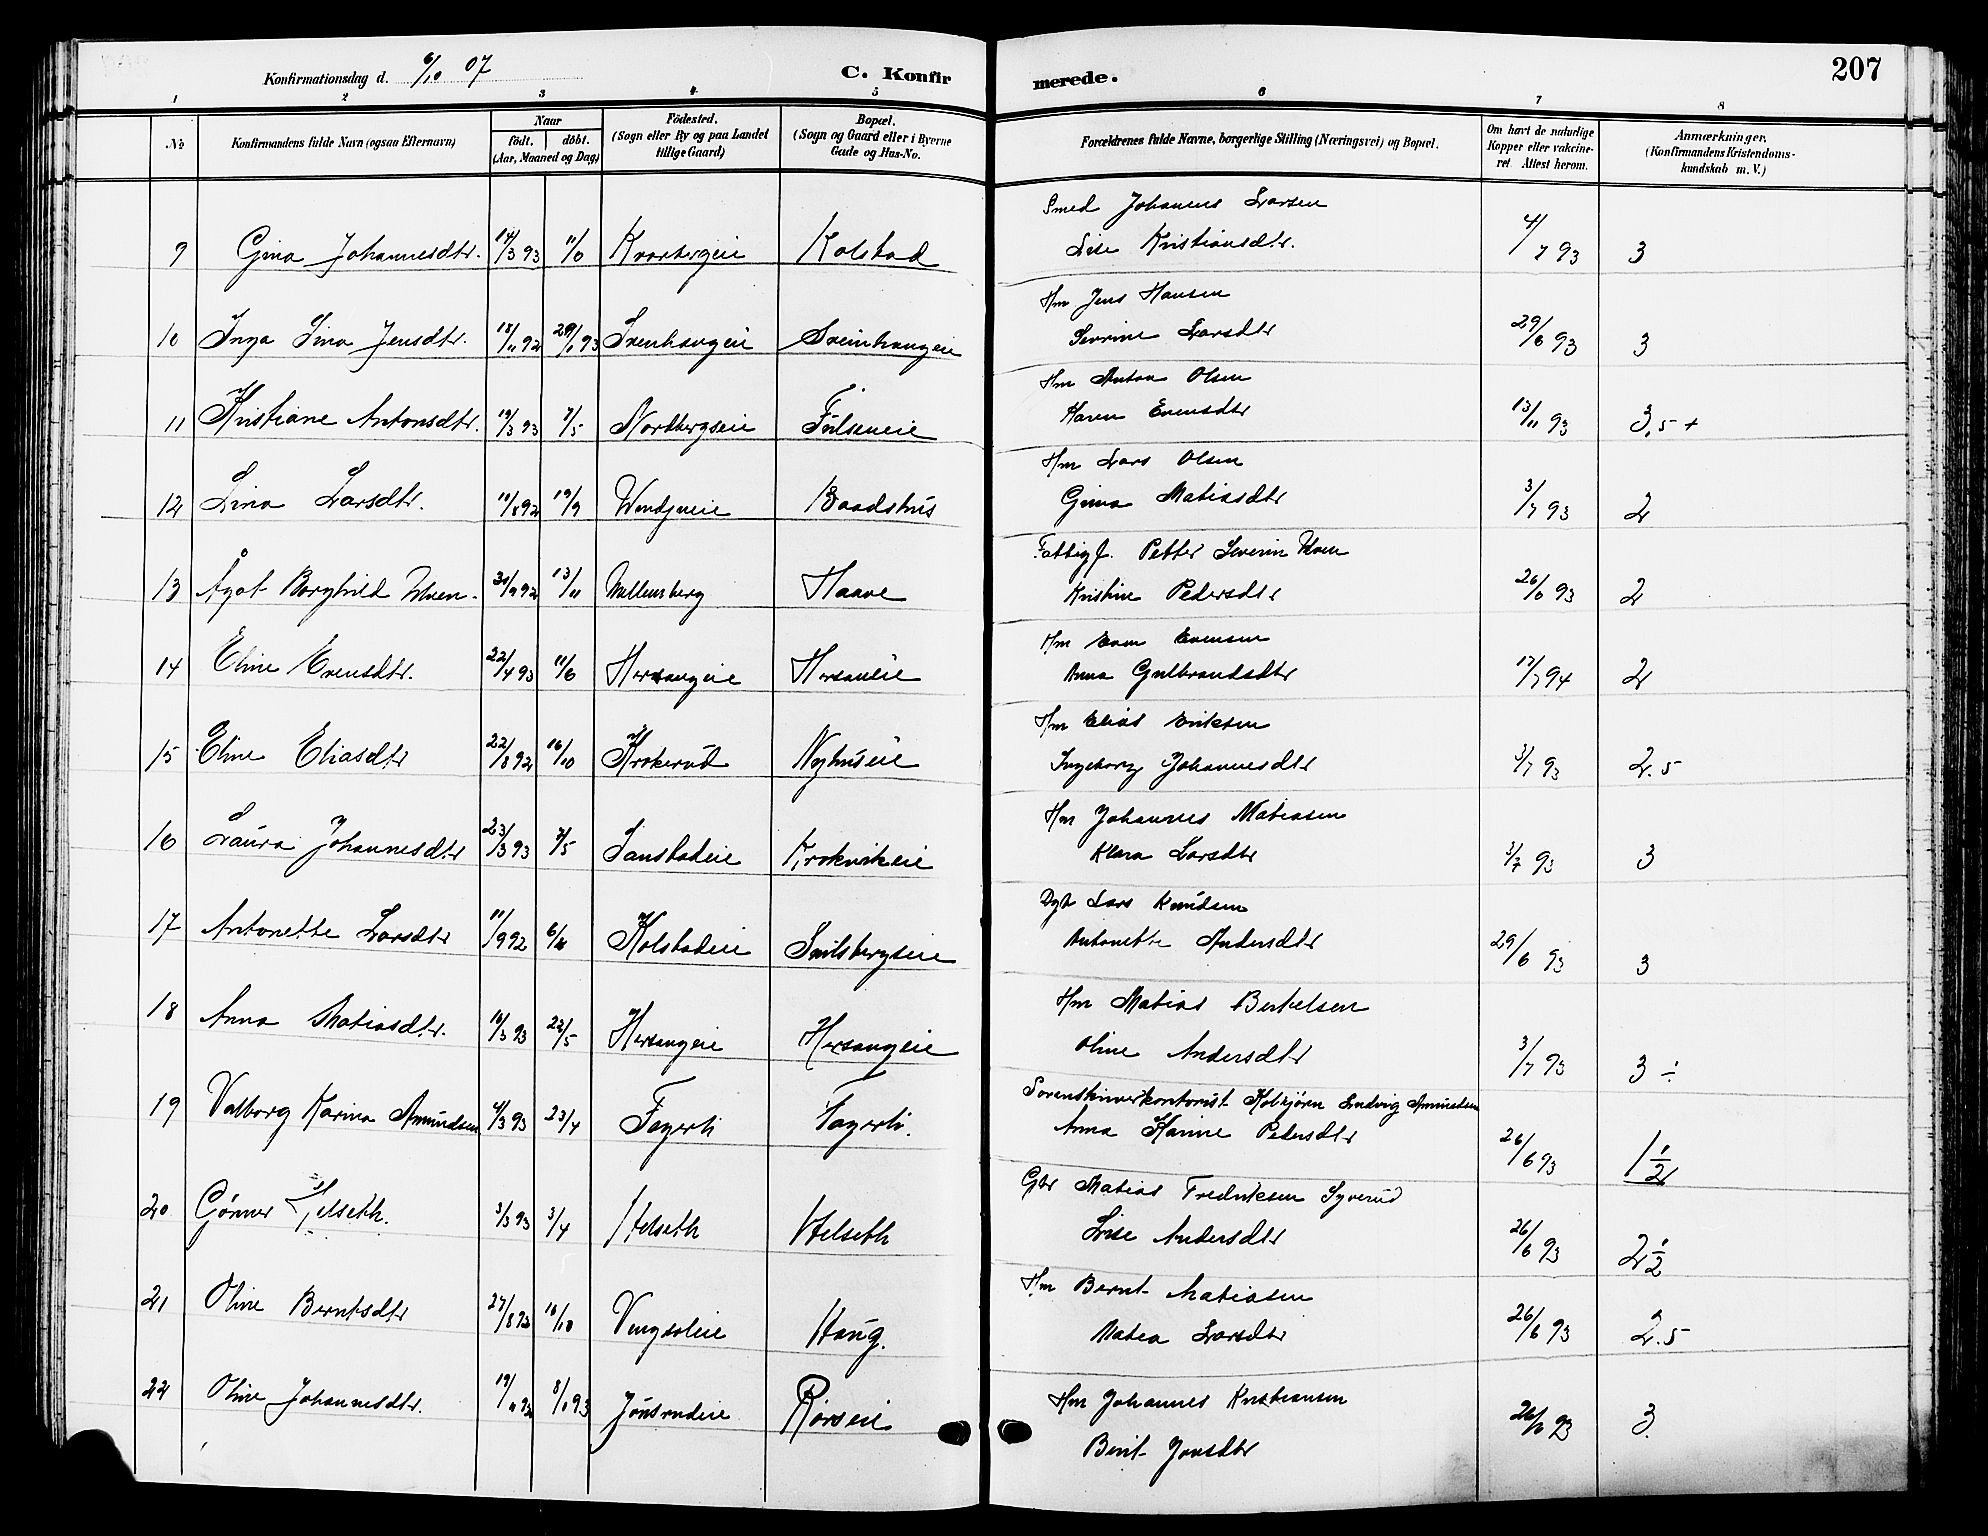 Konfirmationsdag d. 6/10 07
C. Konfirmerede.
207
1 2 3 4 5 6 7 8
No
Konfirmandens fulde Navn (ogsaa Efternavn)
Naar
födt. döbt.
(Aar, Maaned og Dag)
Födested.
(Sogn eller By og paa Landet
tillige Gaard)
Bopæl.
(Sogn og Gaard eller i Byerne
Gade og Hus-No.
Forældrenes fulde Navne, borgerlige Stilling (Næringsvei) og Bopæl.
Om havt de naturlige
Kopper eller vakcine-
ret Attest herom.
Anmærkninger.
(Konfirmandens Kristendoms-
kundskab m. V.)
Smed Johannes Larsen
9 Gina Johannesdtr. 14/3 93 Kolstad Lise Kristiansdtr. 4/7 93 3
Hm Jens Hansen
10 Inga Lina Jensdtr. 18/11 92 Sveinhaugeie Severine Larsdtr 29/6 93 3
Hm Anton Olsen
11 Kristiane Antonsdtr. 19/3 93 7/5 Nordbergseie Fulseneie Karen Evensdtr 13/11 93 3,5 +
Hm Lars Olsen
12 Lina Larsdtr. 19/9 Baadshus Gina Matiasdtr 3/7 93 2
Fattigf. Petter Severin Uven
13 Ågot Borghild Uven. 13/11 Haave Kristine Pedersdtr 26/6 93 2
Hm Even Evensen
14 Eline Evensdtr. 22/4 93 11/6 Hersaugeie Anna Gulbrandsdtr 17/7 94 2
Hm Elias Eriksen
15 Eline Eliasdtr 22/8 92 16/10 Krokerud Nyhuseie Ingeborg Johannesdtr 3/7 93 2.5
Hm Johannes Matiasen
16 Laura Johannesdtr 23/3 93 7/5 Krokvikeie Klara Larsdtr 3/7 93 3
Lars Knudsen
17 Antonette Larsdtr 11/9 92 Kolstadeie Smlsbergseie Antonette Andersdtr 29/6 93 3
Hm Matias Berkelsen
18 Anna Matiasdtr. 16/3 93 22/5 Hersaugeie Hersaugeie Oline Andersdtr 3/7 93 3 ÷
Sorenskriverkontorist Kolbjørn Ludvig Amundsen
19 Valborg Karina Amundsen 4/3 93 23/4 Fagerli Fagerli. Anna Karine Pedersdtr 26/6 93 1 1/2
Gbr Matias Fredriksen Syverud
20 Gønner Helseth. 3/3 93 3/4 Helseth Helseth Lise Andersdtr 26/6 93 2 1/2
Hm Bernt Matiasen
21 Oline Berntsdtr 27/8 92 16/10 Haug. Matea Larsdtr 26/6 93 2.5
Hm Johannes Kristiansen
22 Oline Johannesdtr. 19/11 92 8/1 93 Jønsrudeie Rørseie Berit Jonsdtr 26/6 93 3.